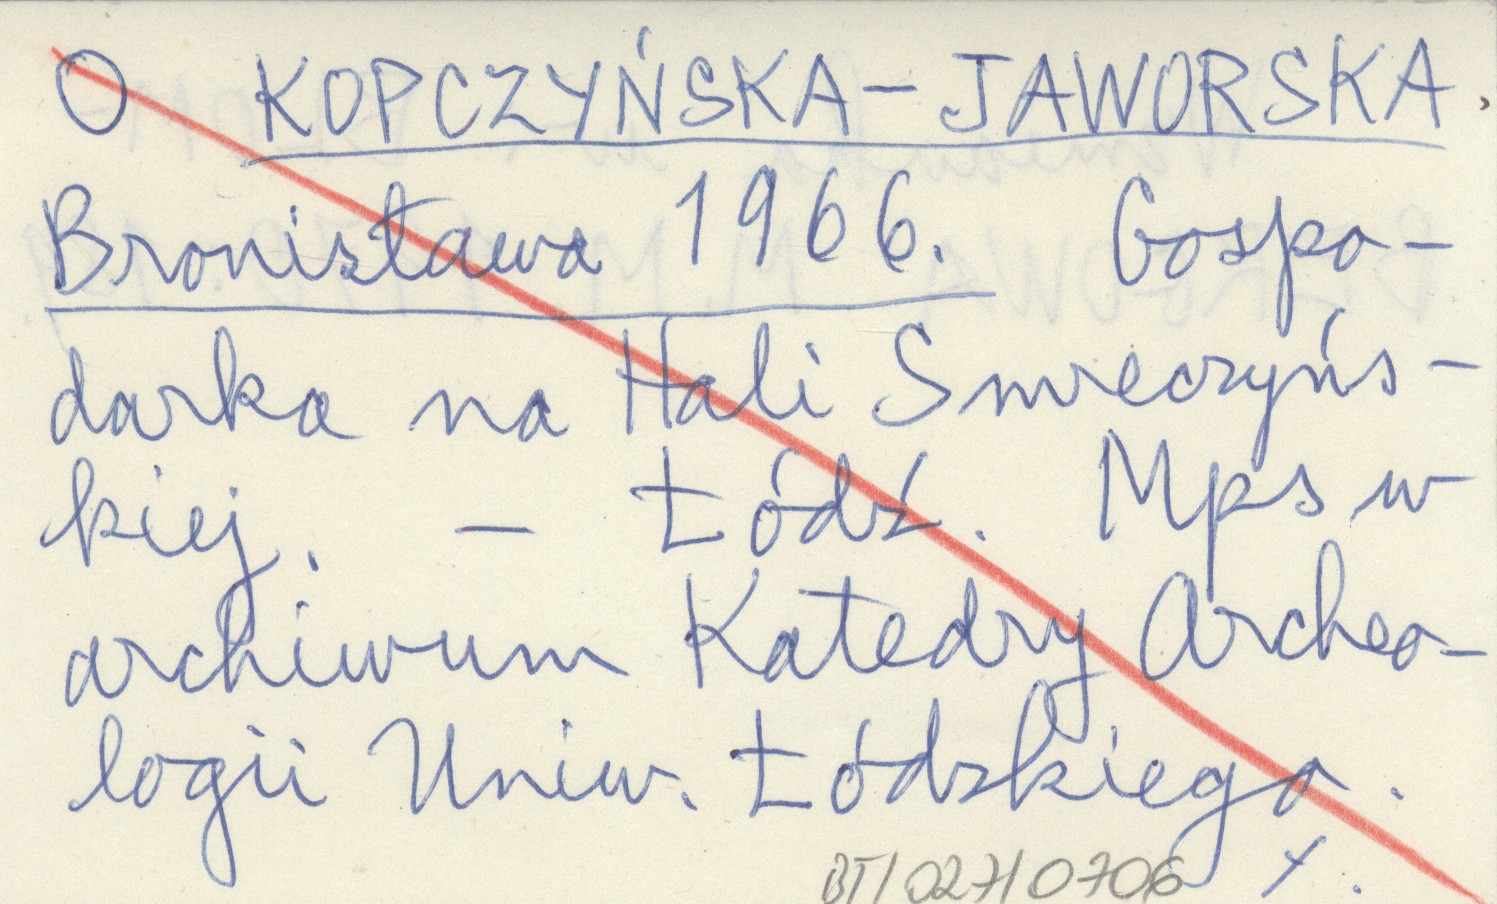 O KOPCZYŃSKA-JAWORSKA,
Bronisława 1966. Gospo-
darka na Hali Smreczyńs-
kiej. - Łódź. Mps w
archiwum Katedry Archeo-
logii Uniw. Łódzkiego.
BT/027/0706 x.